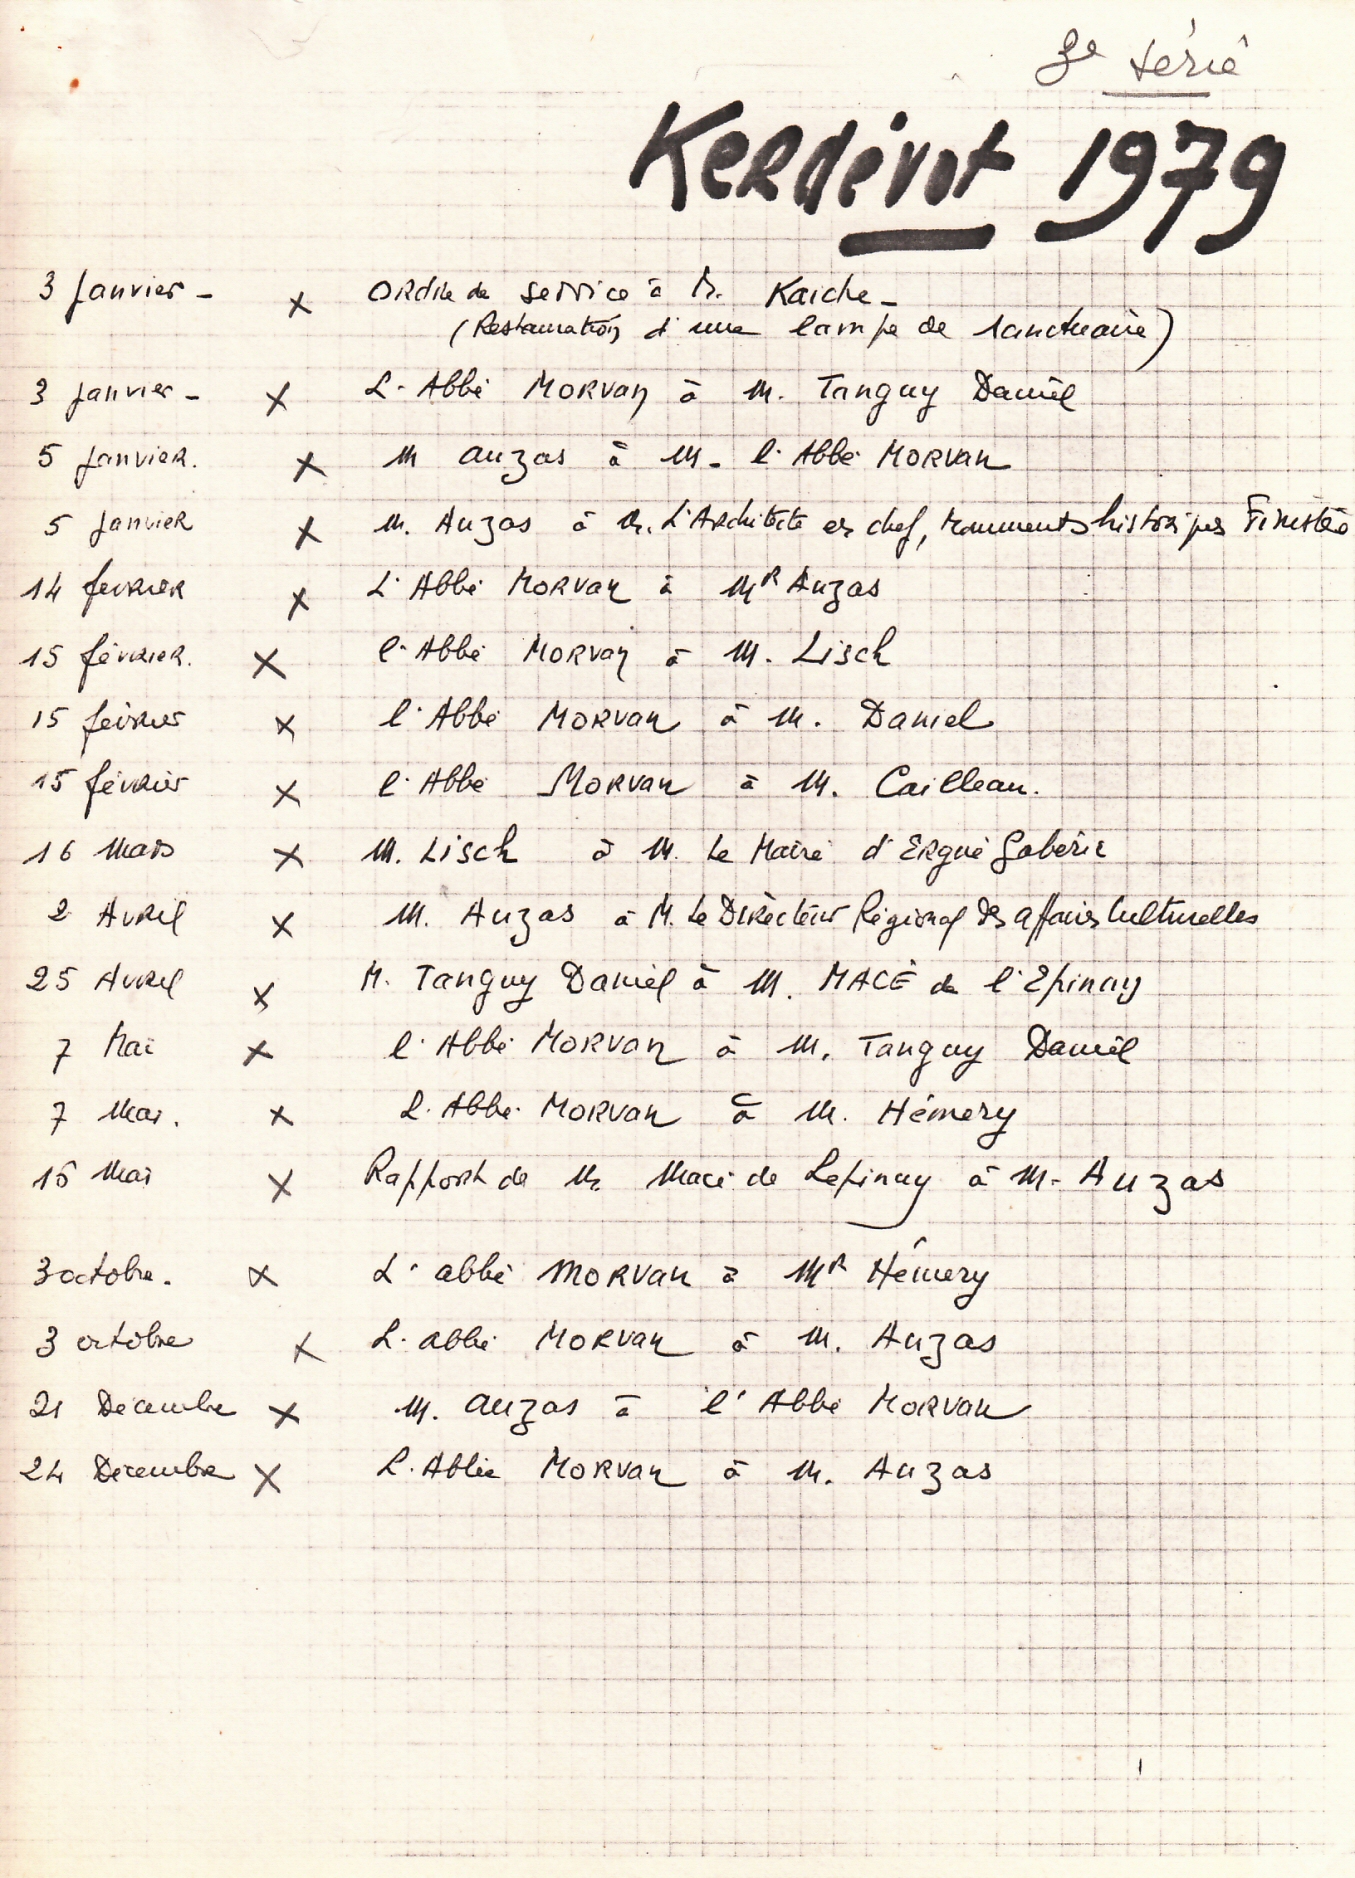 série
Kerdévot 1979
3 Janvier - x Ordre de service à M. Kaiche -
(Restauration d'une lampe de sanctuaire)
3 Janvier - x L'Abbé MORVAN à M. Tanguy Daniel
5 Janvier. x M Auzas à M. l'Abbé MORVAN
5 Janvier x M. Auzas à M. L'Architecte en chef, Monuments historiques Finistère
14 février x L'Abbé MORVAN à Mr Auzas
15 février. x l'Abbé MORVAN à M. Lisch
15 février x l'Abbé MORVAN à M. Daniel
15 février x l'Abbé MORVAN à M. Cailleau.
16 Mars x M. Lisch à M. Le Maire d'Ergué Gabéric
2 Avril x M. Auzas à M. Le Directeur Régional des Affaires Culturelles
25 Avril x M. Tanguy Daniel à M. MACÉ de l'Epinay
7 Mai x l'Abbé MORVAN à M. Tanguy Daniel
7 Mai. x L'Abbé MORVAN à M. Hémery
15 Mai x Rapport de M. Macé de Lepinay à M. Auzas
3 octobre. x L'abbé MORVAN à Mr Hémery
3 octobre x L'abbé MORVAN à M. Auzas
21 Décembre x M. Auzas à l'Abbé MORVAN
24 Décembre x L'Abbé MORVAN à M. Auzas